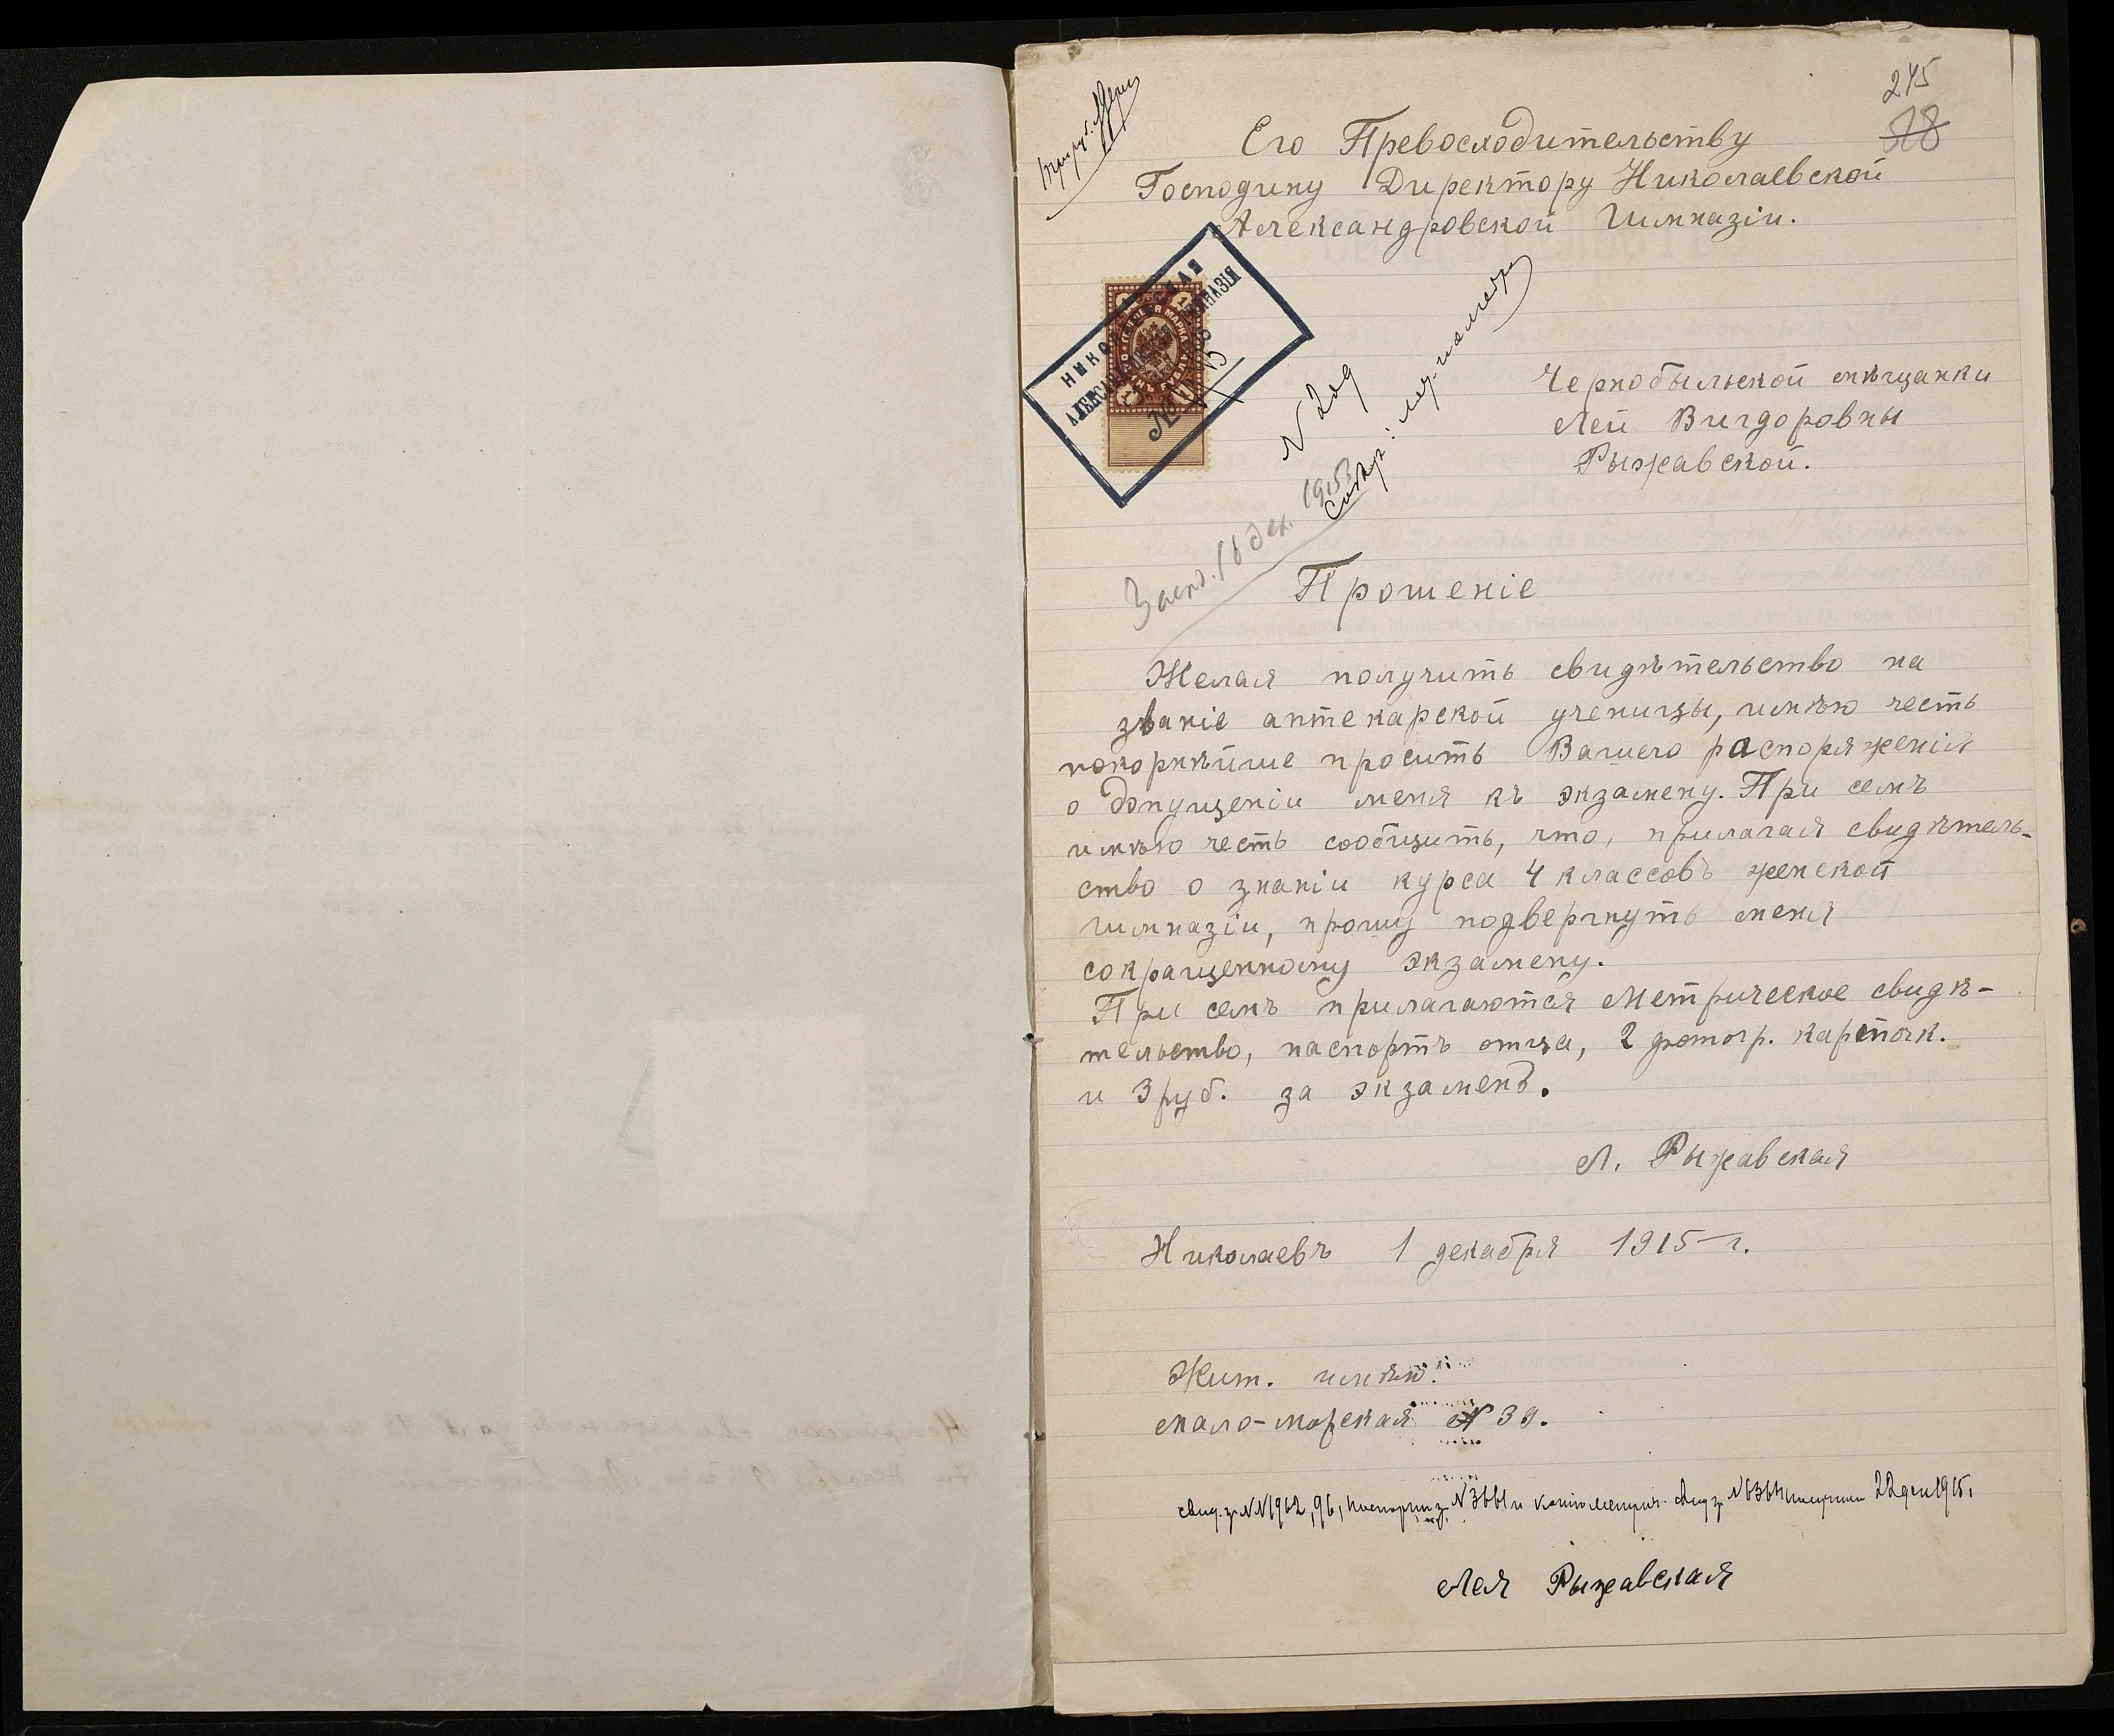 245
18
Его Превосходительству
Господину Директору Николаевской
Александровской Гимназіи.
НИКОЛАЕВСКАЯ
АЛЕКСАНДРОВСКАЯ ГИМНАЗІЯ
№
N 209
Чернобыльской мѣщанки
Леи Вигдоровны
Рыжавской.
16 дек. 1915
Прошеніе
Желая получить свидѣтельство на
званіе аптекарской ученицы, имѣю честь
покорнѣйше просить Вашего распоряженія
о допущеніи меня къ экзамену. При семъ
имѣю честь сообщить, что, прилагая свидѣтель-
ство о знаніи курса 4 классовъ женской
гимназіи, прошу подвергнуть меня
сокращенному экзамену.
При семъ прилагаются Метрическое свидѣ-
тельство, паспортъ отца, 2 фотогр. карточк.
и 3 руб. за экзаменъ.
Л. Рыжавская
Николаевъ 1 декабря 1915 г.
Жит. имѣю:
мало-морская № 39.
свид. за NN 1962, 96, паспорт за N 3661 и копію метрич. свид. за N 6364 получила 22 дек 1915.
Лея Рыжавская